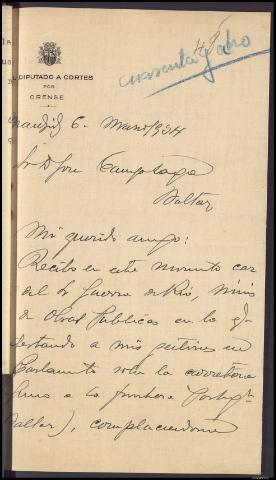 48
cuarenta y ocho
DIPUTADO A CORTES
POR
ORENSE
Madrid 6 - Marzo/934
Sr D José
Baltar
Mi querido amigo:
Recibo en este momento car
del Sr Guerra del Rio, minis
de Obras Públicas en la q
testando a mis gestiones en
Parlamento sobre la carretera
a la frontera Portug
Baltar), complaciendome